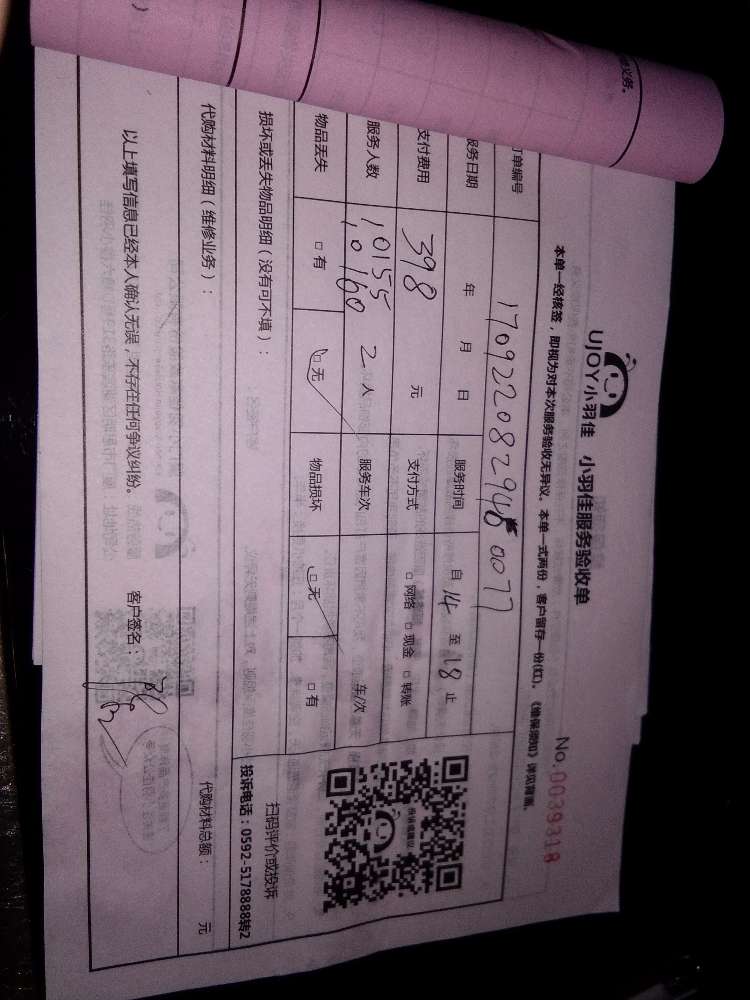 UJOY小羽佳 小羽佳服务验收单
No.0039318
本单一经核签，即视为对本次服务验收无异议。本单一式两份，客户留存一份(红)。《维保须知》详见背面。
单编号
服务日期 年 月 日 服务时间 自 14 至 18 止
支付费用 398 元 支付方式 □ 网络 □ 现金 □ 转账
服务人数 10155 10160 2 人 服务车次 车/次
物品丢失 □ 有 □ 无 物品损坏 □ 无 □ 有
损坏或丢失物品明细（没有可不填）：
代购材料明细（维修业务）：
代购材料总额： 元
以上填写信息已经本人确认无误，不存在任何争议纠纷。 客户签名：
投诉或建议
扫码评价或投诉
投诉电话：0592-5178888转2